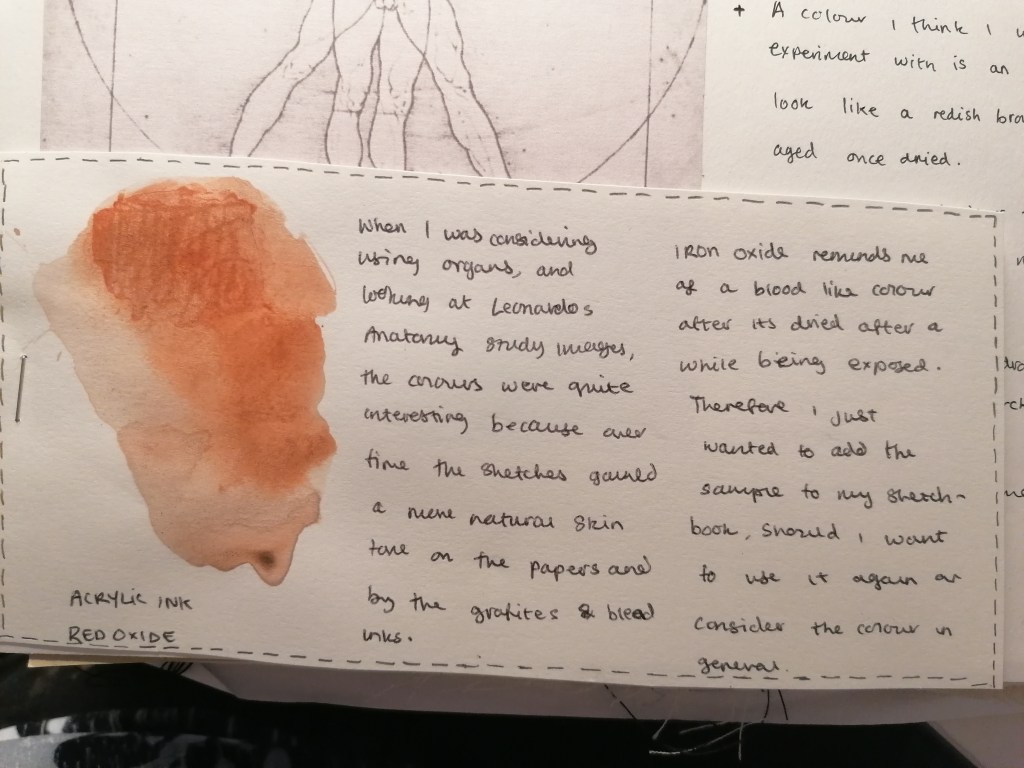 + A colour I think I
experiment with is an
look like a redish
aged once dried.
When I was considering
using organs, and
looking at Leonardos
Anatomy study images,
the colours were quite
interesting because over
time the sketches gained
a more natural skin
tone on the papers and
by the grafites & bleed
inks.
IRON oxide reminds me
of a blood like colour
after its dried after a
while being exposed.
Therefore I just
wanted to add the
sample to my sketch-
book, should I want
to use it again or
consider the colour in
general.
ACRYLIC INK
RED OXIDE